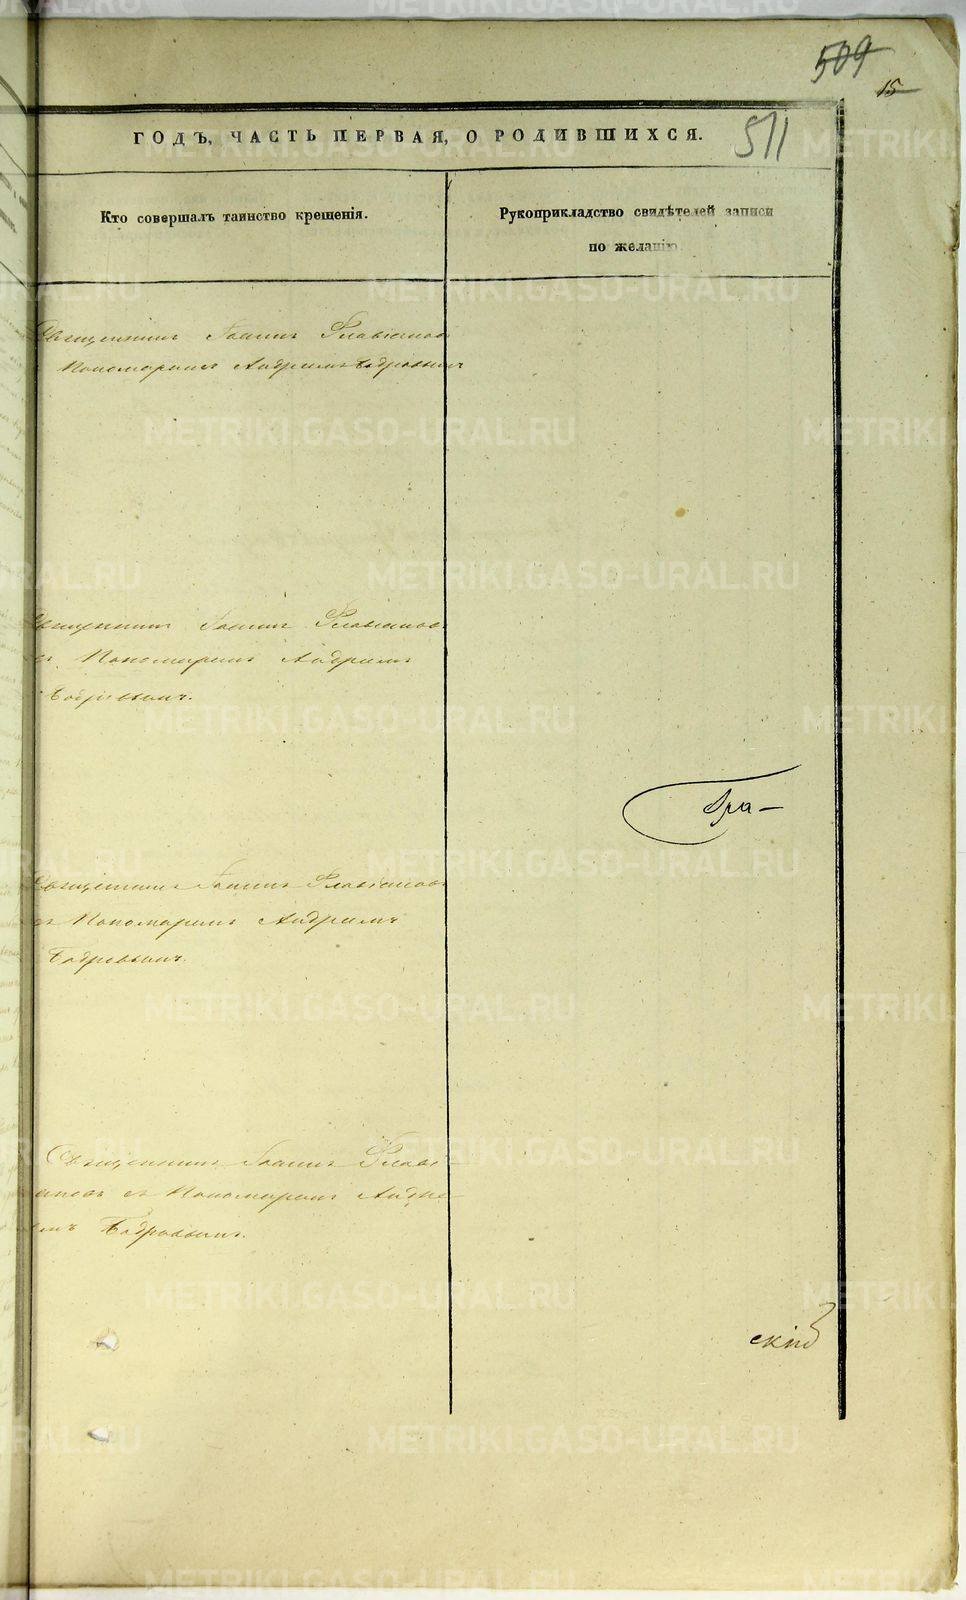 509
15
ГОДЪ, ЧАСТЬ ПЕРВАЯ, О РОДИВШИХСЯ.
511
Кто совершалъ таинство крещенія.
Рукоприкладство свидѣтелей записи
по желанію.
Священникъ Іоаннъ Флавіановъ
Пономаремъ Андреемъ Бобровымъ
Священникъ Іоаннъ Флавіановъ
съ Пономаремъ Андреемъ
Бобровымъ.
Священникъ Іоаннъ Флавіановъ
съ Пономаремъ Андреемъ
Бобровымъ.
Священникъ Іоаннъ Флаві
ановъ съ Пономаремъ Андре
емъ Бобровымъ.
скій
METRIKI.GASO-URAL.RU